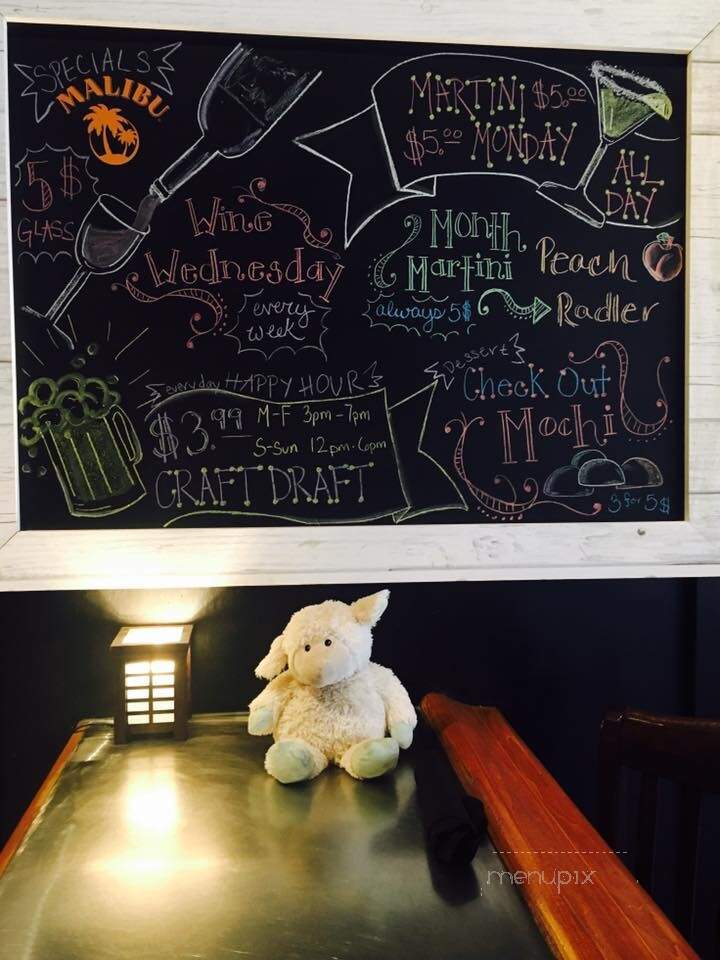 SPECIALS
MALIBU
5$
GLASS
Wine
Wednesday
every
week
MARTINI $5.00
$5.00 MONDAY
ALL
DAY
Month
Martini
always 5$
Peach
Radler
everyday HAPPY HOUR
$3.99
M-F 3pm-7pm
S-Sun 12pm-6pm
CRAFT DRAFT
Dessert
Check Out
Mochi
3 for 5$
menupix